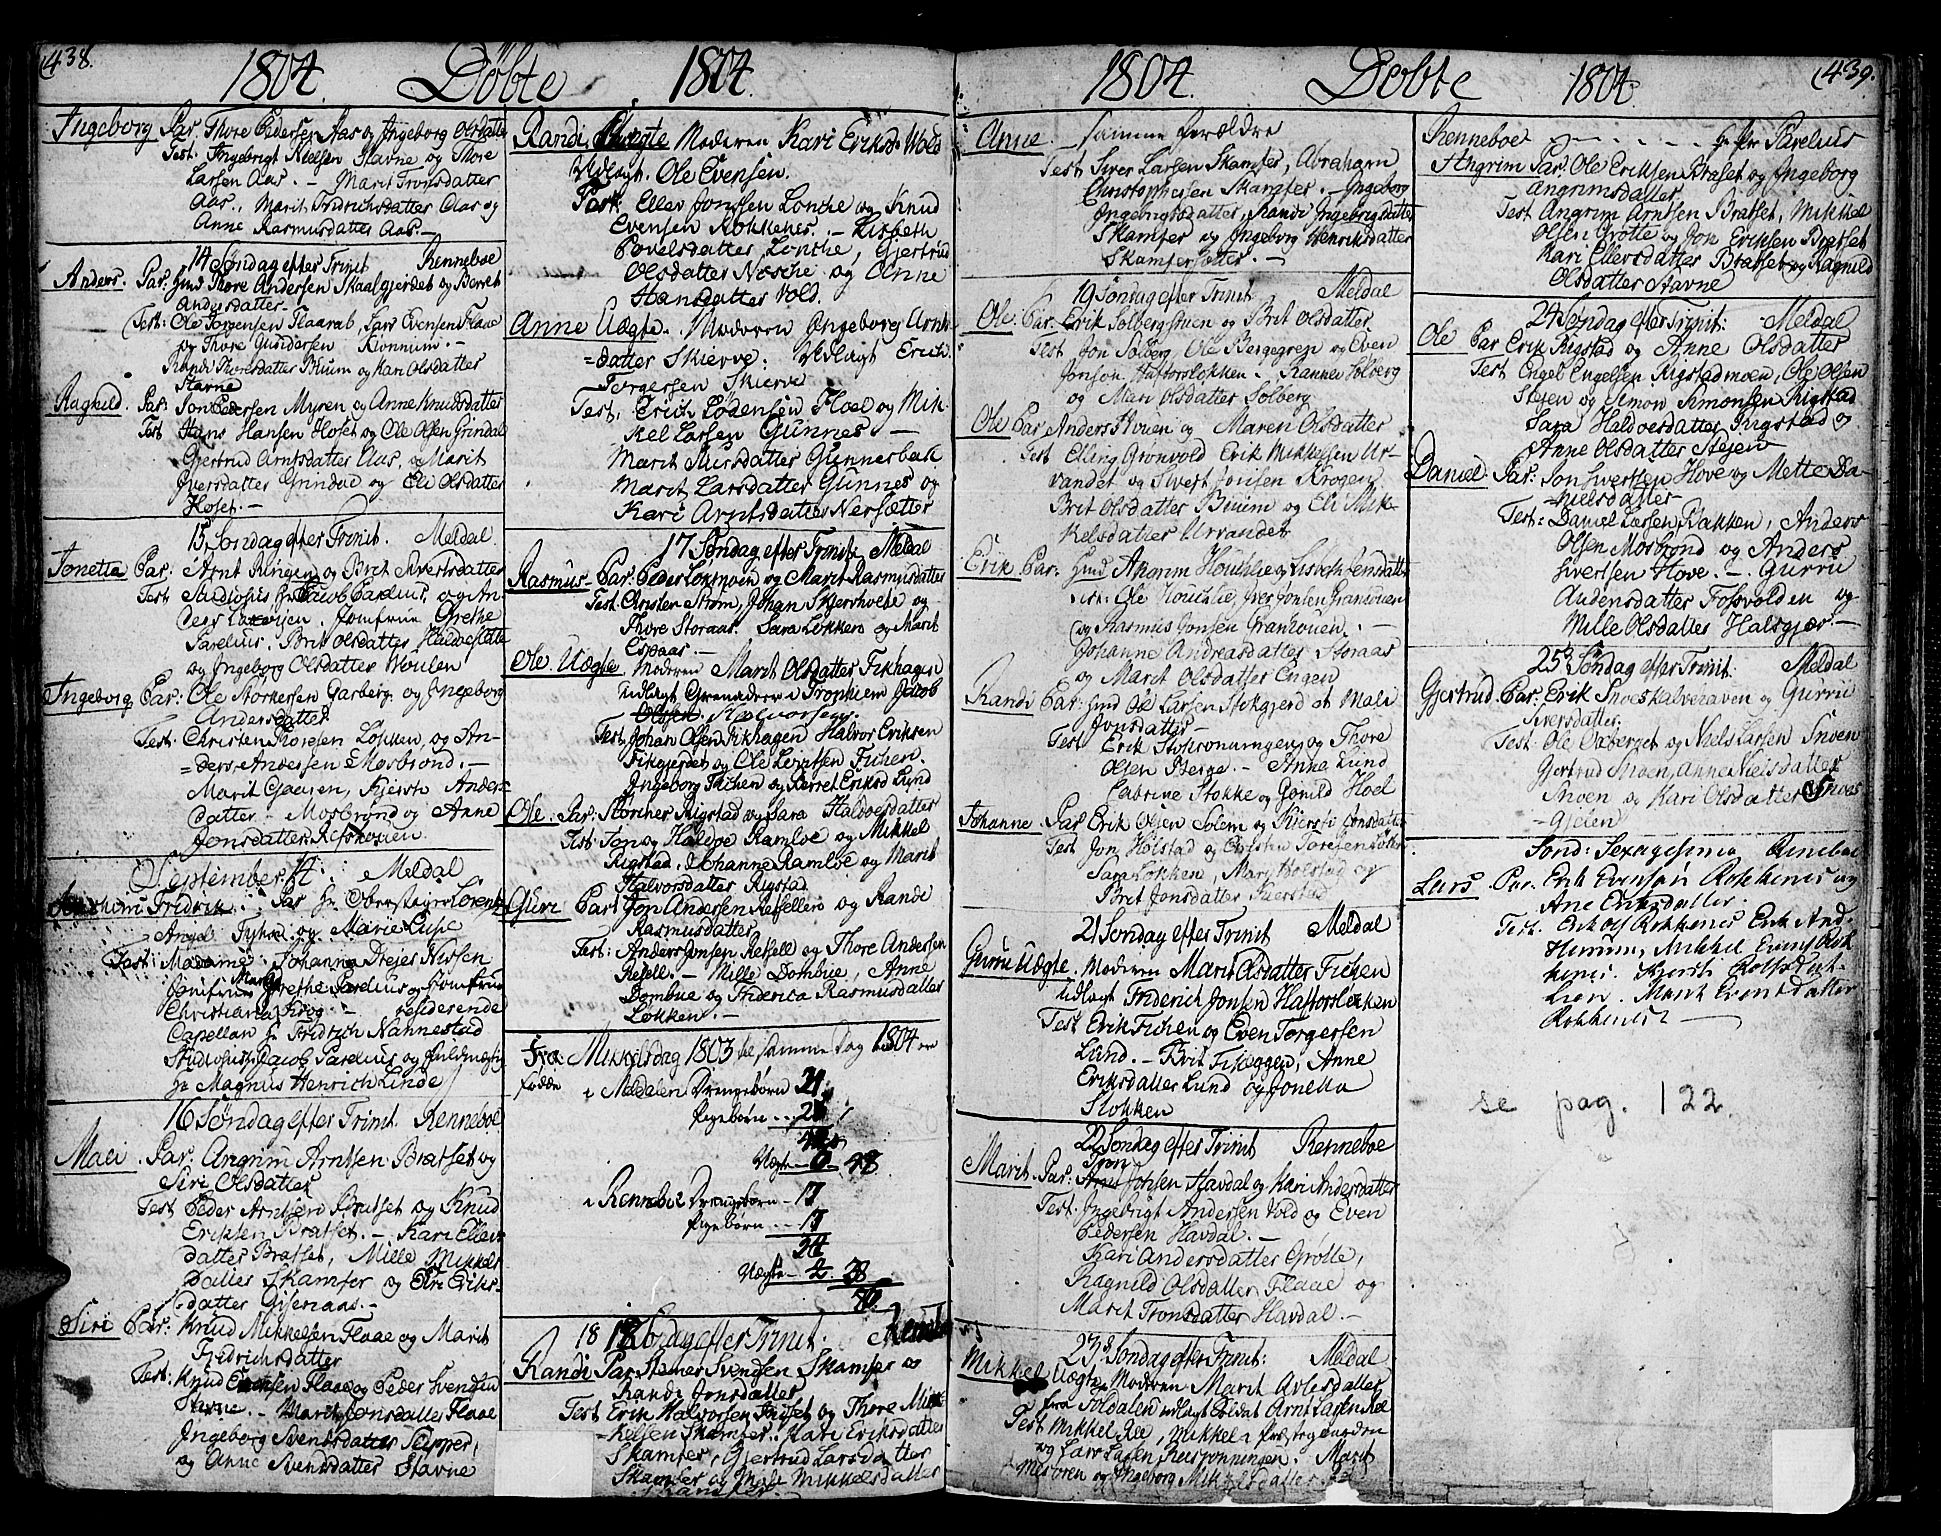 438.
1804. Döbte 1804.
Ingeborg Par. Thore Pedersen Aas og Ingeborg Olsdatter
Test. Ingebrigt Nielsen Stavne og Thore
Larsen Aas. - Marit Tronsdatter
Aas. Marit Fridrichsdatter Aas og
Anne Rasmusdatter Aas. -
14 Søndag efter Trinit Renneboe
Anders. Par: Gmd Thore Andersen Skaalgjerdet og Berret
Andersdatter -
Test: Ole Torgersen Flaarab, Lars Evensen Flaae
og Thore Gundersen -
Randi Thoresdatter Buum og Kari Olsdatter
Stavne
Ragnild. Par: Jon Pedersen Myren og Anne Knudsdatter
Test Hans Hansen Hoset og Ole Olsen Grindal
Gjertrud Arntsdatter Aas, og Marit
Iversdatter Grindal og Eli Olsdatter
Hoset. -
15 Søndag efter Trinit. Meldal
Jonetta Par: Arnt Ringen og Brit Sivertsdatter
Test Studiosus Hr Jacob Parelius, og An-
ders Løkvijen. Jomfrue Grethe
Parelius. Brit Olsdatter
og Ingeborg Olsdatter
Ingeborg Par: Ole Storkersen Garberg og Ingeborg
Andersdatter
Test. Christen Thoresen Løkken, og An-
=ders Andersen Mosbrond. -
Marit Gaasen, Kjersti Anders-
datter - Mosbrond og Anne
Jonsdatter
September 14 : Meldal
Fridrik. Par Hr Oberst Lorentz
Angel og Marie Lupe
Test: Madame Johanna Drejer Nissen
Jomfrue Grethe Parelius og Jomfrue
Christiana Krog - residerende
Capellan Hr Fridrich Nannestad
Studiosus Jacob Parelius og
Hr Magnus Henrich Linde
16 Søndag efter Trinit. Renneboe
Mali. Par. Angrim Arntsen Bratset og
Siri Olsdatter
Test Peder Arntsen Bratset og Knud
Eriksen Bratset. - Kari Ellevs-
datter Bratset, Mille Mikkels
datter Skamfer og Siri Eriks-
datter Gisenaas. -
Siri Par: Knud Mikkelsen Flaae og Marit
Fridrichsdatter
Test: Knud Evensen Flaae og Peder Svendsen
Stavne. - Marit Jonsdatter Flaae
Ingeborg Svendsdatter
og Anne Svensdatter Stavne
Randi Uægte Moderen Kari Eriksd Wold
Udlagt. Ole Evensen.
Test Ellev Jonssen Lonche og Knud
Evensen Rokkenes. - Lisbeth
Povelsdatter Lonche, Gjertrud
Olsdatter Næsche og Anne
Hansdatter Vold.
Anne Uægte. Moderen Ingeborg Arnt
=datter Skierve: Udlagt Erik
Torgersen Skierve
Test, Erich Lodensen Hoel og Mik-
kel Larsen Gunnes -
Marit Siursdatter Gunnesbak
Marit Larsdatter Gunnes og
Kari Arntsdatter Nersætter
17 Søndag efter Trinit Meldal
Rasmus Par: Peder Løkmoen og Marit Rasmusdatter
Test. Christen Strøm, Johan Skjerholte og
Thore Storaas. Sara Løkken og Marit
Espaas -
Ole. Uægte Moderen Marit Olsdatter Fikhagen
Udlagt Grenadeer i Tronhiem Jacob
Olsen Halvorsen
Test Johan Olsen Fikhagen Halvor Eriksen
Fikgjerdet og Ole Fichen.
Ingeborg Fichen og Berret Eriksd Lund
Ole. Par: Storcher Rigstad og Sara Haldvesdatter
Test. Jon og Haldve Ramloe og Mikkel
Rigstad. Johanne Ramloe og Marit
Halvorsdatter Rigstad
Guri Par: Jon Andersen Resellen og Rande
Rasmusdatter
Test: Anders Jonsen Resell og Thore Andersen
Resell - Mille Dombue, Anne
Dombue og Friderica Rasmusdatter
Løkken. -
Fra Mikkelsdag 1803 til samme Dag 1804 ere
fødde i Meldalen Drengebørn 21.
Pigebørn
Uægte - 6 48
i Renneboe Drengebørn - 17
Pigebørn
Uægte - 2
18 Søndag efter Trinit:
Randi Par Stener Svendsen Skamfer og
Randi Jonsdatter
Test Erik Halvorsen og Thore Mik-
=kelsen Skamfer. Kari Eriksdatter
Skamfer, Gjertrud Larsdatter
Skamfer og Mali Mikkelsdatter
Skamfer.
1804. Döbte 1804 439.
Anne - samme Forældre
Test Siver Larsen Skamfer, Abraham
Christophersen Skamfer. - Ingeborg
Ingebrigtsdatter, Randi Ingebrigtsdatter
Skamfer og Ingeborg Henriksdatter
Skamfersætter. -
19 Søndag efter Trinit. Meldal
Ole. Par. Erik Solbergstuen og Brit Olsdatter
Test Jon Solberg, Ole Bergegren og Even
Jonson Haftorsløkken. Rannei Solberg
og Mari Olsdatter Solberg
Ole Par Anders Kouen og Maren Olsdatter
Test Elling Gronvold Erik Mikkelsen Ur-
vandet og Sivert Jonsen Krogen
Brit Olsdatter Buum og Eli Mik-
kelsdatter Urvandet
Erik Par: Gmd Angrim Houchlie og Lisbeth Jensdatter
Test: Ole Houchlie, Iver Jonsen Granmoen
og Rasmus Jonsen Granmoen. -
Johanne Andreasdatter Storaas
og Marit Olsdatter Engen
Randi Par: Gmd Ole Larsen Stokgjerd og Mali
Jonsdatter -
Test Erik og Thore
Olsen Berge - Anne Lund
Catrine Stokke og Gonild Hoel
Johanne Par Erik Olsen Solem og Kiersti Arntsdatter
Test Jon Holstad og Christen Toresen Løkken
Sara Løkken, Mary Holstad og
Brit Jonsdatter
21 Søndag efter Trinit Meldal
Gurru Uægte. Moderen Marit Olsdatter Fichen
Udlagt Friderich Jonsen Haftorsløkken
Test Erik Fichen og Even Torgersen
Lund. - Brit Fikeggen, Anne
Eriksdatter Lund og Jonetta
Stokken
22 Søndag efter Trinit Renneboe
Marit. Par: Sivers Johsen Havdal og Kari Andersdatter
Test: Ingebrigt Andersen Vold og Even
Pedersen Havdal. -
Kari Andersdatter Grøtte,
Ragnild Olsdatter Flaae og
Marit Tronsdatter Havdal. -
23d Søndag efter Trinit: Meldal
Mikkel Uægte Moderen Marit
fra Soldalen udlagt Soldat Arnt Larsen Ree
Test Mikkel Ree, Mikkel i Præstegaarden
og Lars Larsen . Marit
og Ingeborg Mikkelsdatter
Renneboe - - - - - - Hr Parelius
Angrim Par: Ole Eriksen Bratset og Ingeborg
Angrimsdatter
Test Angrim Arntsen Bratset, Mikkel
Olsen Grøtte og Jon Eriksen Bratset
Kari Ellevsdatter Bratset og Ragnild
Olsdatter Stavne
24 Søndag efter Trinit: Meldal
Ole Par Erik Rigstad og Anne Olsdatter
Test Engel Engelsen Rigstadmoen, Ole Olsen
Steen og Simon Simonsen Rigstad
Sara Haldvesdatter Rigstad og
Anne Olsdatter Steen
Daniel Par: Jon Sivertsen Hove og Mette Da-
=nielsdatter
Test: Daniel Larsen Bakken, Anders
Olsen Mosbrond og Anders
Sivertsen Hove. - Gurru
Andersdatter Fossvolden og
Mille Olsdatter Halsgjær -
25d Søndag efter Trinit: Meldal
Gjertrud Par: Erik Snoeskalvehaven og Gurru
Siversdatter.
Test: Ole Oxberget og Niels Larsen Snoen
Gjertrud Snoen, Anne Nielsdatter
Snoen og Kari Olsdatter Snoes
-Gjelen
Sond: Sexagesima Reneboe
Lars Par. Erik Evensøn Rokkenes og
Ane Eriksdatter.
Test. Erik Ols Rokkenes Erik And:
Hemum, Mikkel Evens Rok
kenes. Kjersti Rolfsdat:
Lien. Marit Eventsdatter
Rokkenes -
se pag. 122.